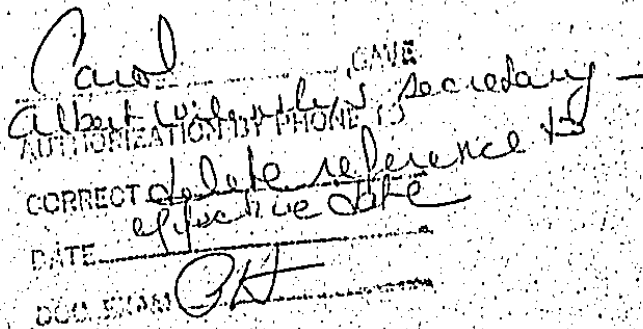 Carol , GAVE
Albert secretary –
AUTHORIZATION BY PHONE TO
CORRECT delete reference to
effective date
DATE
DOC. EXAM PH